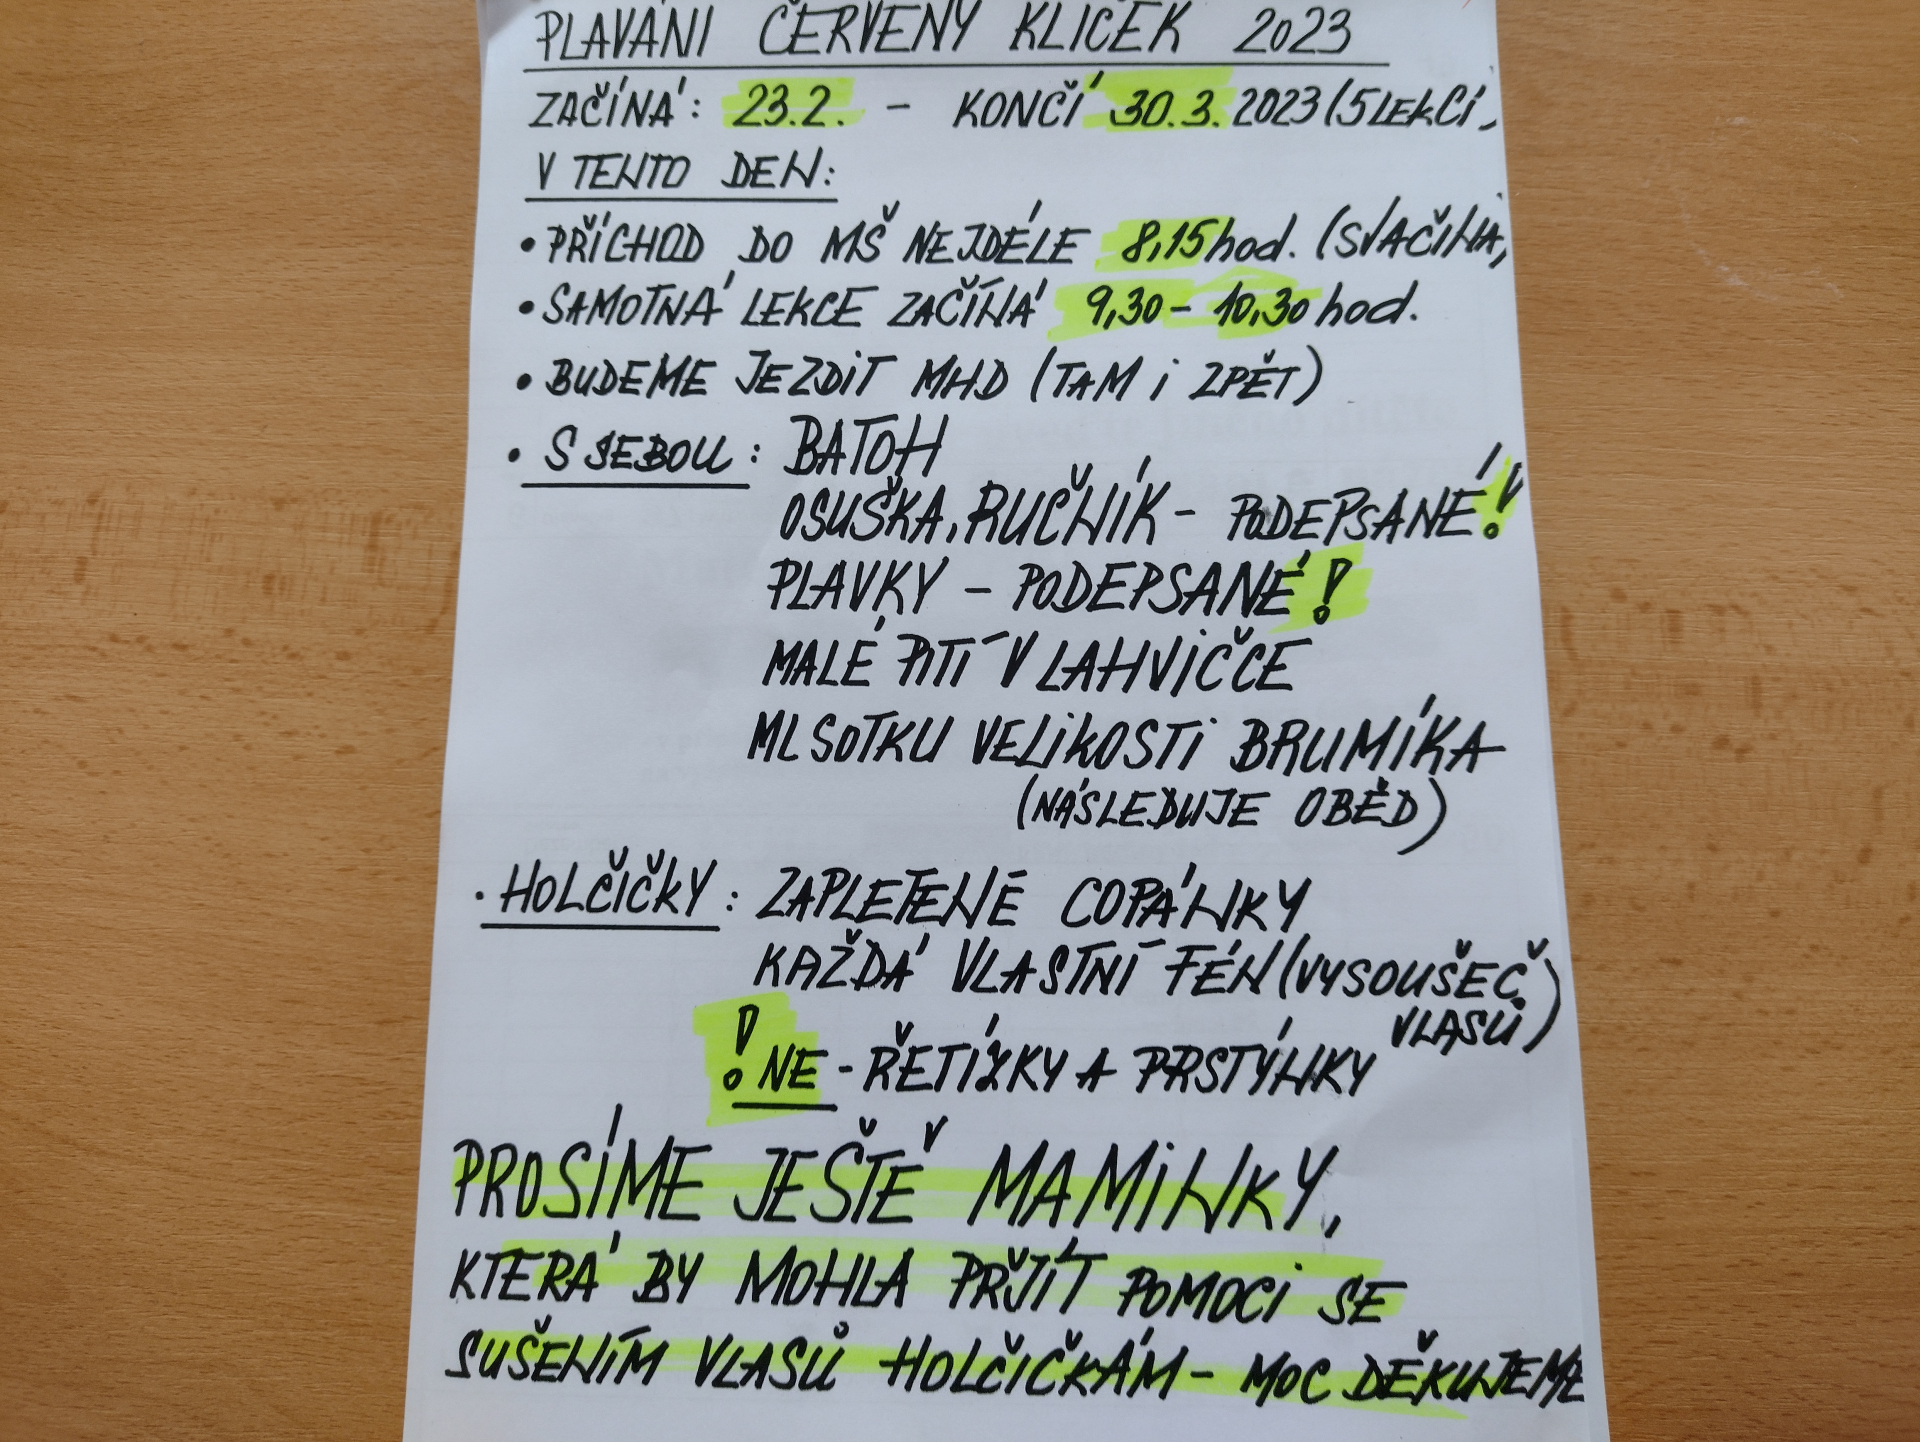 PLAVÁNÍ ČERVENÝ KLÍČEK 2023
ZAČÍNÁ: 23.2. - KONČÍ 30.3. 2023 (5 LEKCÍ,
V TENTO DEN:
• PŘÍCHOD DO MŠ NEJDÉLE 8,15 hod. (SVAČINA,
• SAMOTNÁ LEKCE ZAČÍNÁ 9,30 - 10,30 hod.
• BUDEME JEZDIT MHD (TAM i ZPĚT)
• S SEBOU: BATOH
OSUŠKA, RUČNÍK - PODEPSANÉ!
PLAVKY - PODEPSANÉ!
MALÉ PITÍ V LAHVIČCE
MLSOTKU VELIKOSTI BRUMÍKA
(NÁSLEDUJE OBĚD)
• HOLČIČKY: ZAPLETENÉ COPÁNKY
KAŽDÁ VLASTNÍ FÉN (VYSOUŠEČ
VLASŮ)
! NE - ŘETÍZKY A PRSTÝNKY
PROSÍME JEŠTĚ MAMINKY,
KTERÁ BY MOHLA PŘJÍT POMOCI SE
SUŠENÍM VLASŮ HOLČIČKÁM - MOC DĚKUJEME